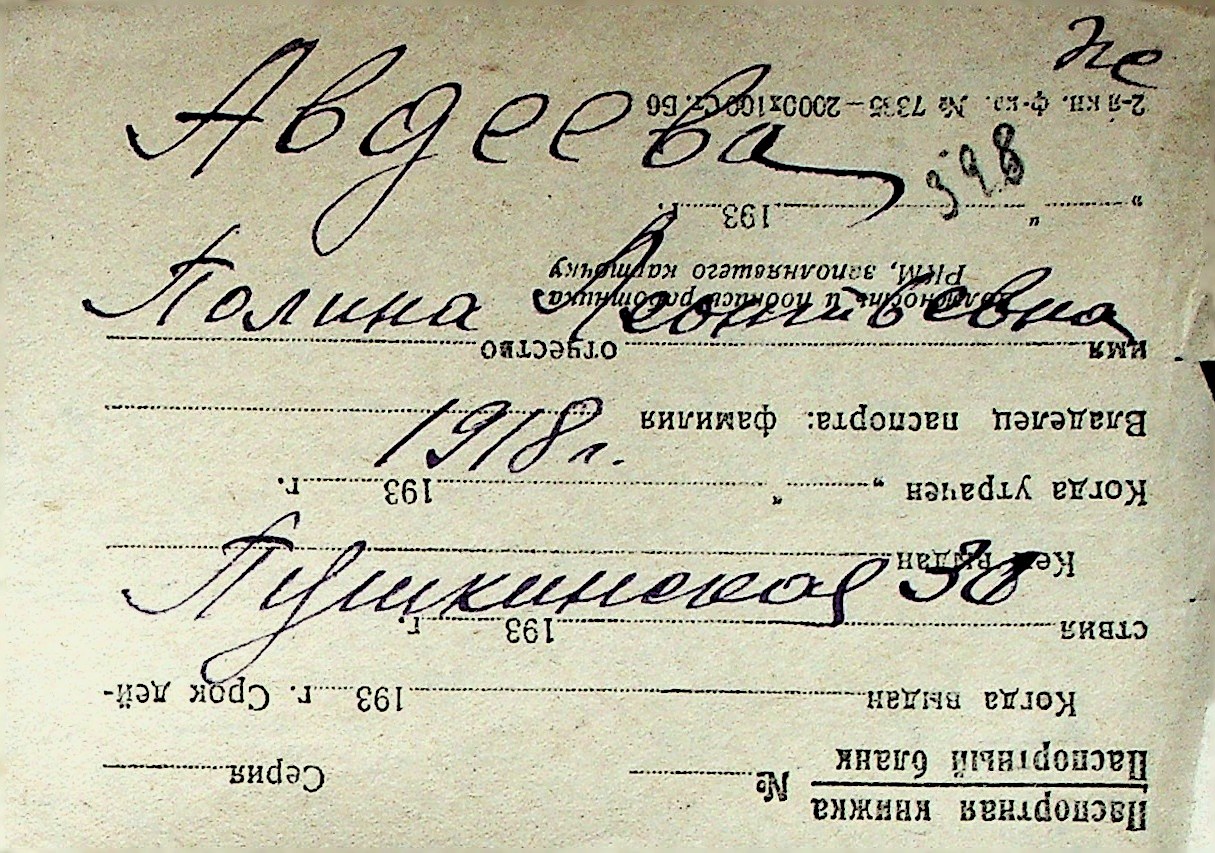 не
Авдеева
398
Полина Леонтьевна
1918 г.
Пушкинская 38
Паспортная книжка
Паспортный бланк
№ Серия
Когда выдан 193 г. Срок дей-
ствия 193 г.
Кем выдан
Когда утрачен „ “ 193 г.
Владелец паспорта: фамилия
имя отчество
должность и подпись работника
РКМ, заполнявшего карточку
„ “ 193 г.
2-я кн. ф-ка. № 7335—2000х100 Ст. Б6